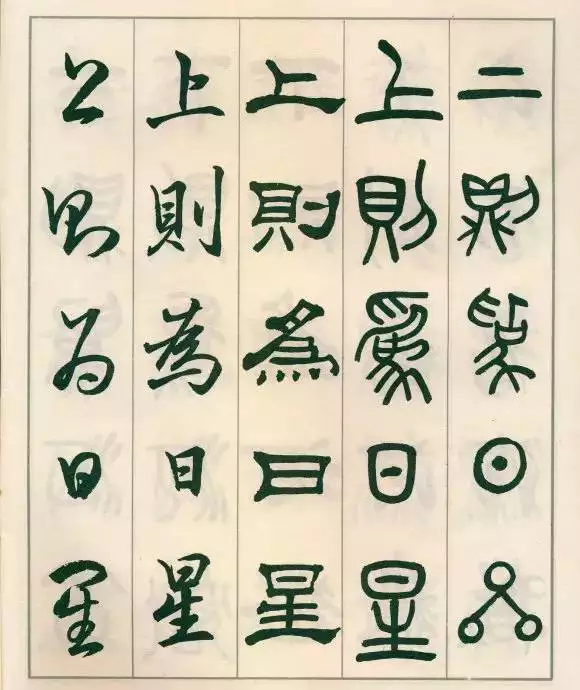 上則爲日星
上則爲日星
上則爲日星
上則為日星
上則為日星